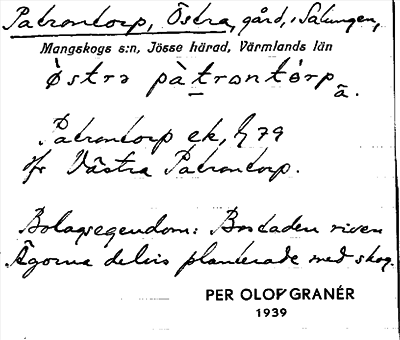 Patrontorp, Östra, gård, i Salungen,
Mangskogs s:n, Jösse härad, Värmlands län
östrə pàtrontòrp
ä.
Patrontorp ek, h 79
jfr Västra Patrontorp.
Bolagsegendom: Bostaden riven
Ägorna delvis planterade med skog.
PER OLOF GRANÉR
1939